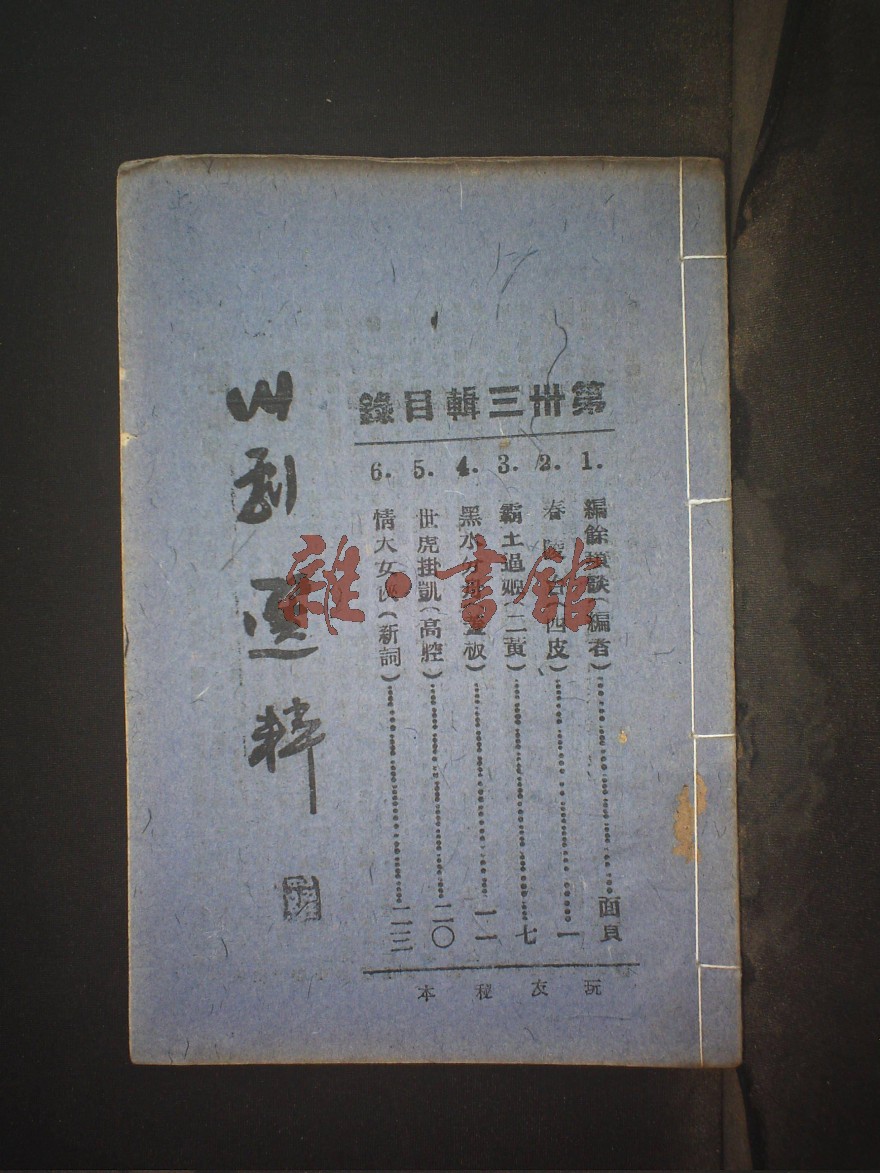 第卅三輯目錄
1. 編餘 編者)……面頁
2. 春陵 (西皮)……一
3. 霸王過 (二黃)……七
4. 黑水 板)……一一
5. 世虎掛凱(高腔)……二〇
6. 情天女俠(新詞)……二三
玩友秘本
川劇選粹
雜·書館